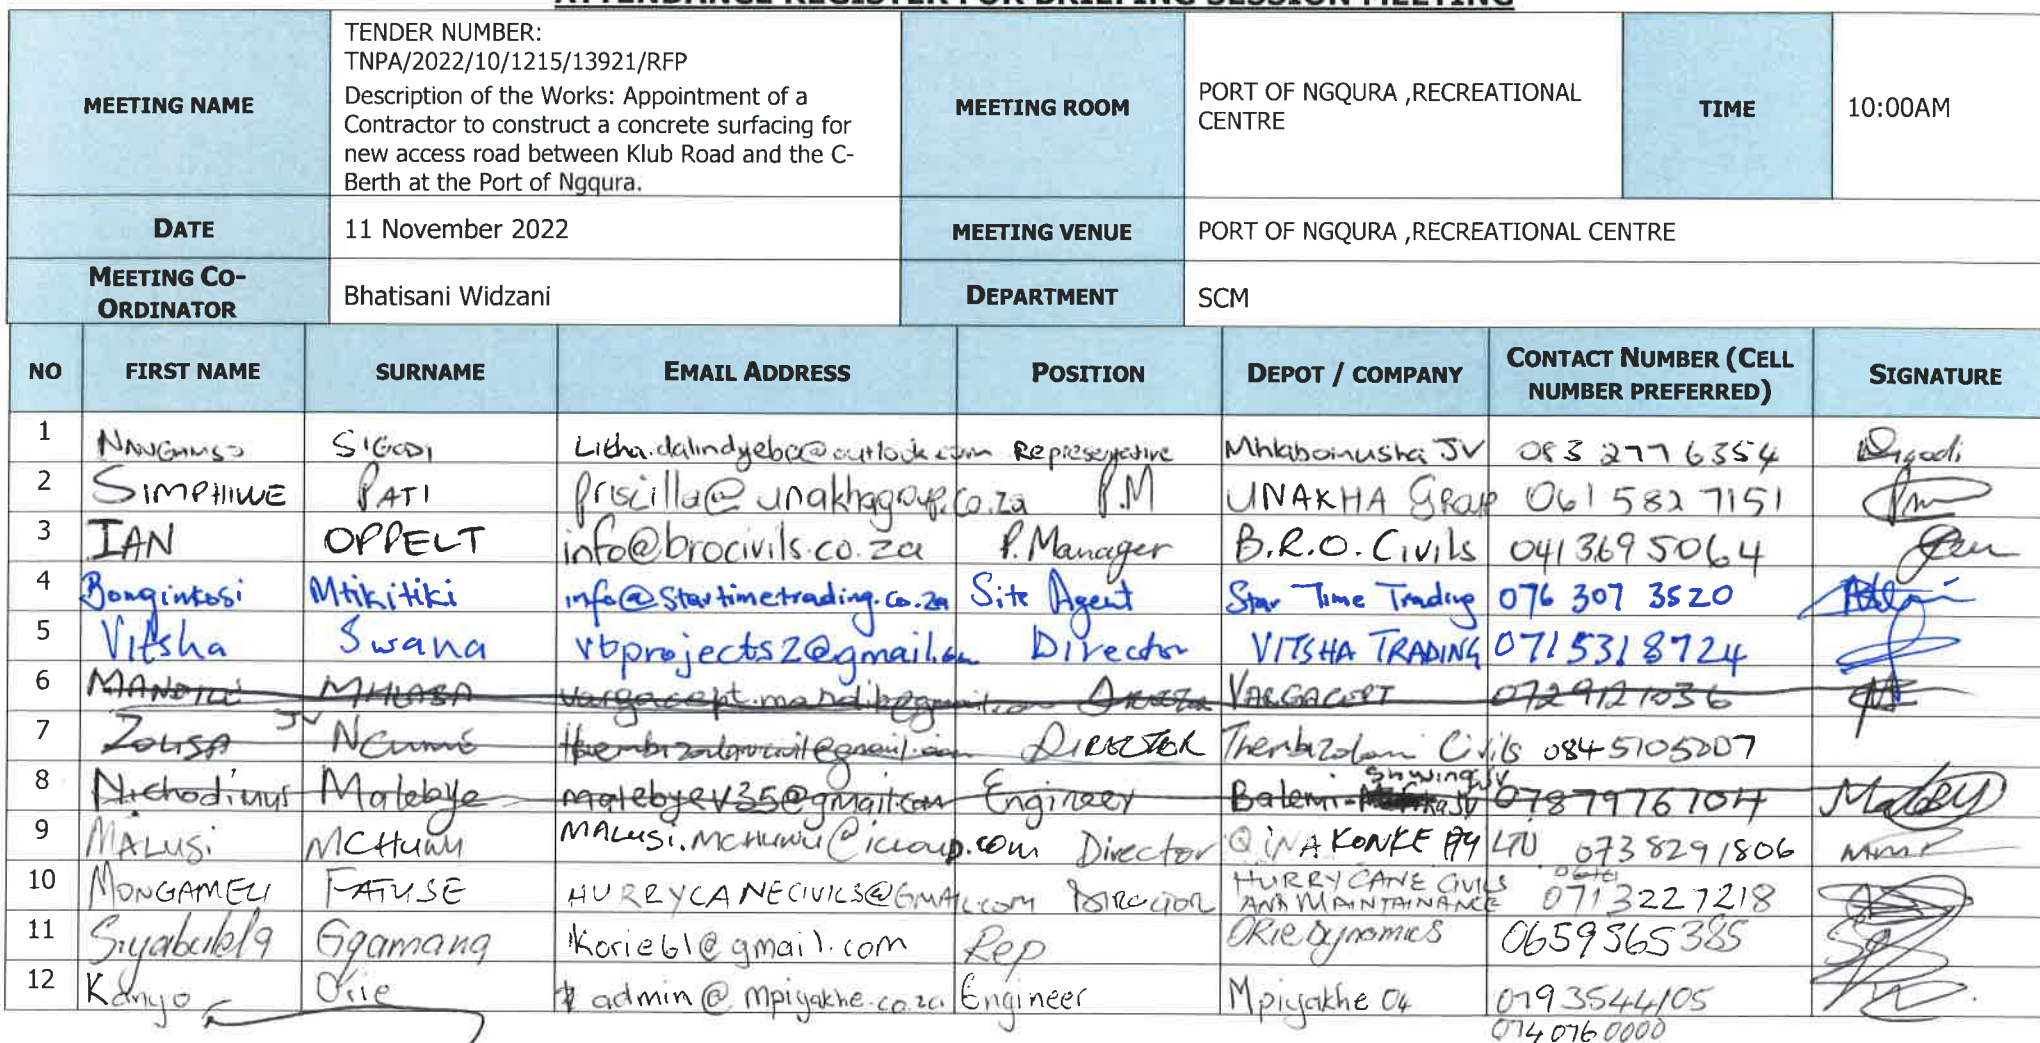 ATTENDANCE REGISTER FOR BRIEFING SESSION MEETING
MEETING NAME
TENDER NUMBER:
TNPA/2022/10/1215/13921/RFP
Description of the Works: Appointment of a
Contractor to construct a concrete surfacing for
new access road between Klub Road and the C-
Berth at the Port of Ngqura.
MEETING ROOM
PORT OF NGQURA ,RECREATIONAL
CENTRE
TIME
10:00AM
DATE
11 November 2022
MEETING VENUE
PORT OF NGQURA ,RECREATIONAL CENTRE
MEETING CO-
ORDINATOR
Bhatisani Widzani
DEPARTMENT
SCM
NO FIRST NAME SURNAME EMAIL ADDRESS POSITION DEPOT / COMPANY CONTACT NUMBER (CELL
NUMBER PREFERRED) SIGNATURE
1 SIGODI Litha.dalindyebo@outlook.com Representative JV 083 277 6354
2 SIMPHIWE PATI Priscilla@unakhagroup.co.za P.M UNAKHA Group 061 582 7151
3 IAN OPPELT info@brocivils.co.za P.Manager B.R.O. Civils 041 3695064
4 Bonginkosi Mtikitiki info@Startimetrading.co.za Site Agent Star Time Trading 076 307 3520
5 Vitsha Swana vbprojects2@gmail.com Director VITSHA TRADING 0715318724
6 MHLABA VARGACEPT 0729121036
7 JV DIRECTOR Thembizolani Civils 0845105207
8 Malebye malebyev35@gmail.com Engineer Balemi 0787976704
9 MALUSI MCHUNU Director QINA KONKE PTY LTD 0738291806
10 MONGAMELI FATUSE HURRYCANECIVILS@GMAIL.com Director HURRYCANE CIVILS
AND MAINTAINANCE 0713227218
11 Gqamana Korie61@gmail.com Rep ORie Dynamics 0659565385
12 Kanyo Orie admin@mpiyakhe.co.za Engineer Mpiyakhe 04 0793544105
074 076 0000